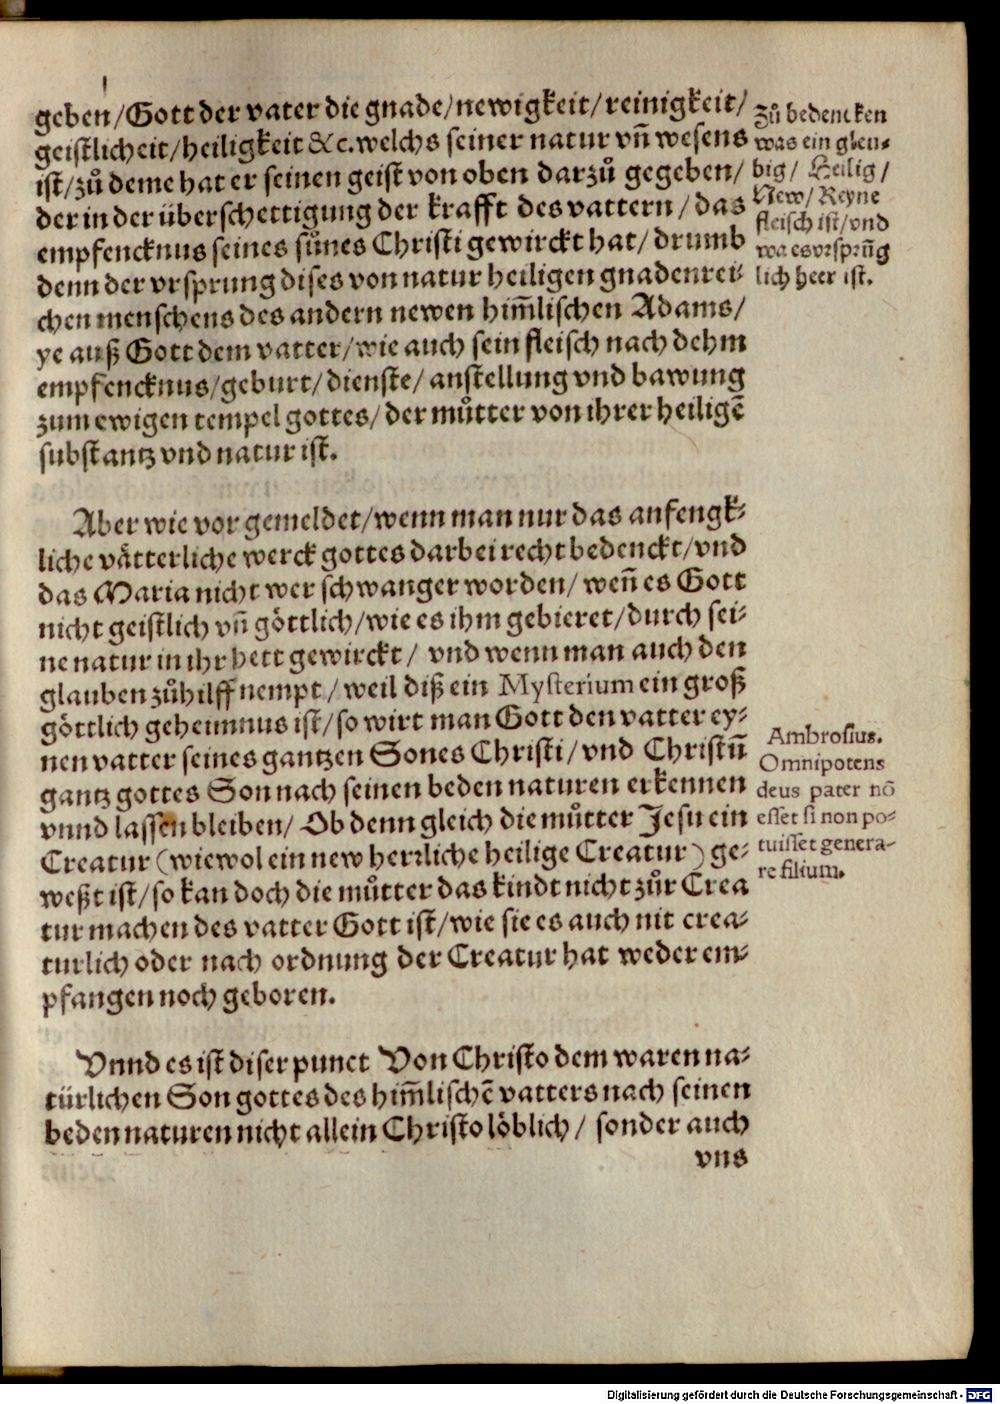 geben/Gott der vater die gnade/newigkeit/reinigkeit/
geistlicheit/heiligkeit &c. welchs seiner natur vñ wesens
ist/zů deme hat er seinen geist von oben darzů gegeben/
der in der überschettigung der krafft des vattern/das
empfencknus seines sůnes Christi gewirckt hat/drumb
denn der vrsprung dises von natur heiligen gnadenrei-
chen menschens des andern newen him̃lischen Adams/
ye auß Gott dem vatter/wie auch sein fleisch nach dehm
empfencknus/geburt/dienste/anstellung vnd bawung
zum ewigen tempel gottes/der můtter von ihrer heiligẽ
substantz vnd natur ist.
Zů bedencken
was ein gleu-
big/Heilig/
New/Reyne
fleisch ist/vnd
wa es vrsprũg
lich heer ist.
Aber wie vor gemeldet/wenn man nur das anfengk-
liche vätterliche werck gottes darbei recht bedenckt/vnd
das Maria nicht wer schwanger worden/weñ es Gott
nicht geistlich vñ göttlich/wie es ihm gebieret/durch sei-
ne natur in ihr hett gewirckt/vnd wenn man auch den
glauben zůhilff nempt/weil diß ein Mysterium ein groß
göttlich geheimnus ist/so wirt man Gott den vatter ey-
nen vatter seines gantzen Sones Christi/vnd Christũ
gantz gottes Son nach seinen beden naturen erkennen
vnnd lassen bleiben/Ob denn gleich die můtter Jesu ein
Creatur (wiewol ein new herrliche heilige Creatur) ge-
weßt ist/so kan doch die můtter das kindt nicht zůr Crea
tur machen des vatter Gott ist/wie sie es auch nit crea-
turlich oder nach ordnung der Creatur hat weder em-
pfangen noch geboren.
Ambrosius.
Omnipotens
deus pater nõ
esset si non po-
tuisset genera-
re filium.
Vnnd es ist diser punct Von Christo dem waren na-
türlichen Son gottes des him̃lischẽ vatters nach seinen
beden naturen nicht allein Christo löblich/sonder auch
vns
Digitalisierung gefördert durch die Deutsche Forschungsgemeinschaft - DFG